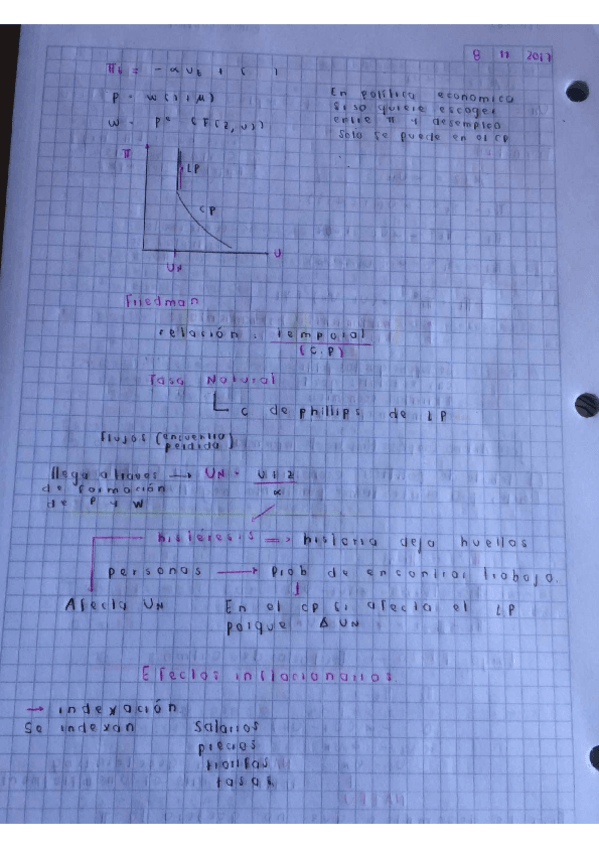 8 11 2017
πt = -αut + ( )
P = W(1+μ)
W = Pe (F(z,u))
En politica economica
si se quiere escoger
entre π y desempleo
solo se puede en el CP
π
LP
CP
UN
U
Friedman
relación temporal
(C.P)
Tasa Natural
C de phillips de LP
Flujos (encuentra
perdida)
llega a traves → UN = μ+z
α
de formación
de P y W
histéresis => historia deja huellas
personas → Prob de encontrar trabajo.
Afecta UN
En el CP si afecta el LP
porque Δ UN
Efectos inflacionarios
→ indexación
Se indexan salarios
precios
tarifas
tasas